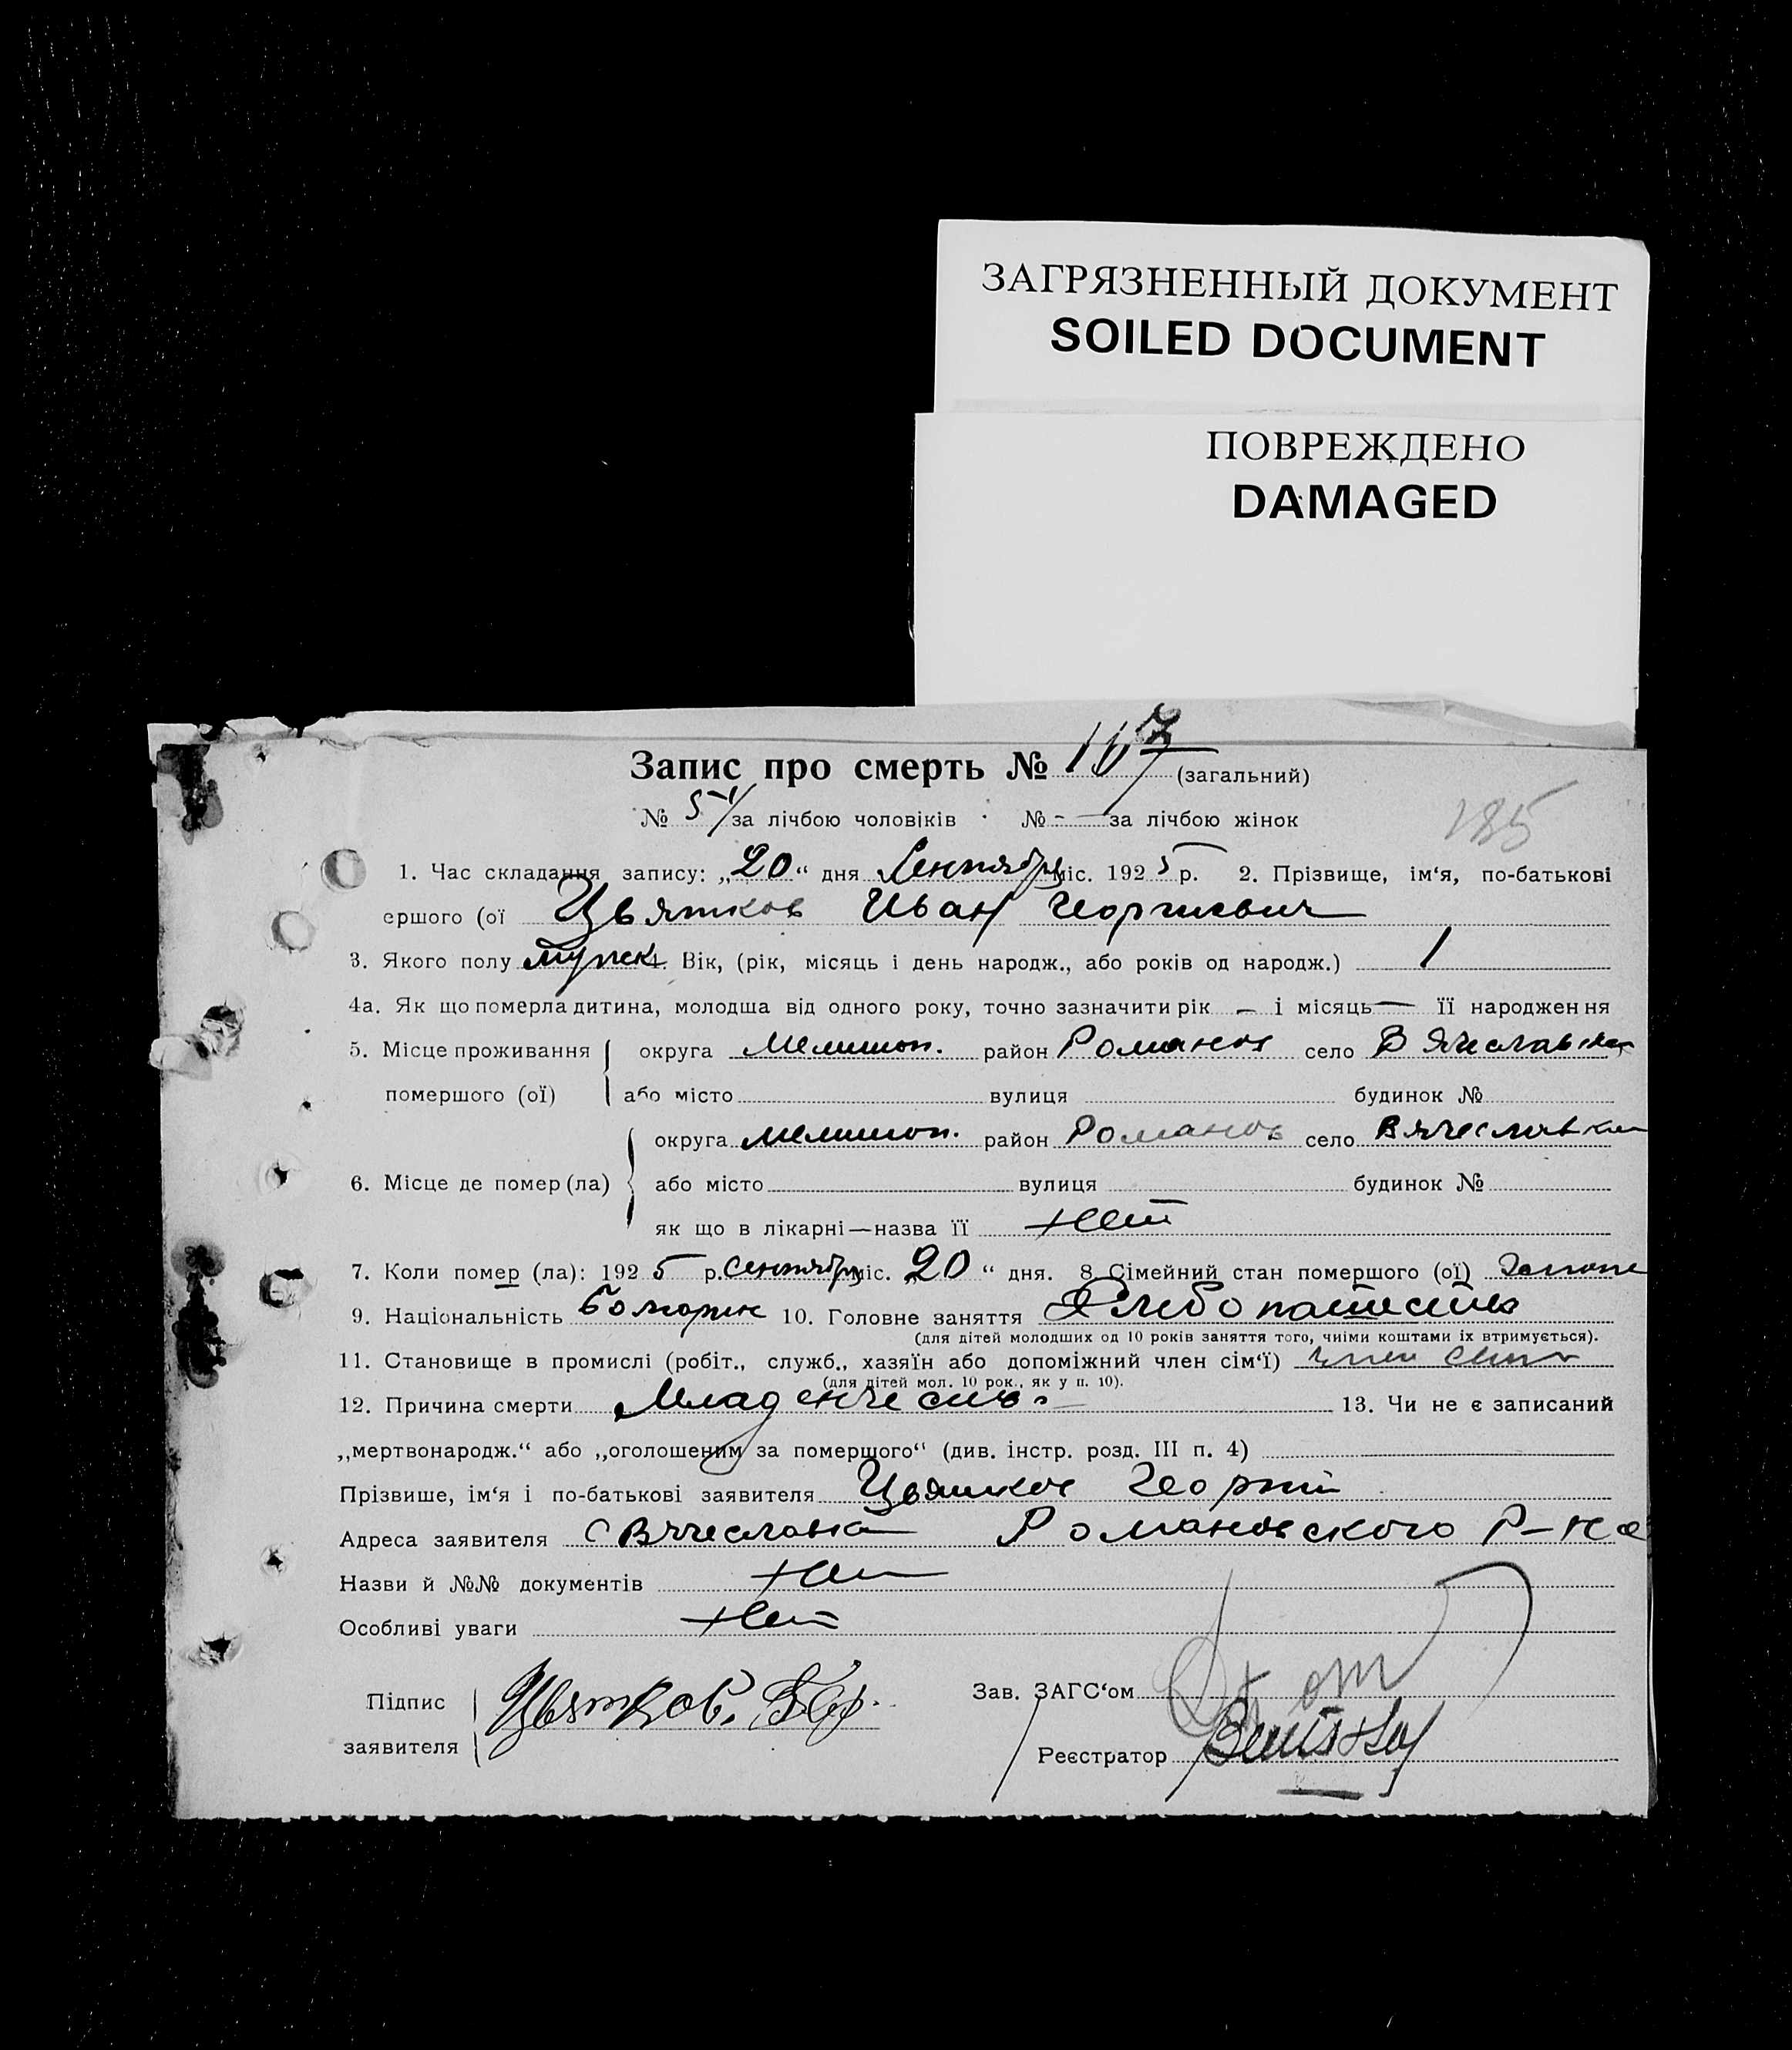 ЗАГРЯЗНЕННЫЙ ДОКУМЕНТ
SOILED DOCUMENT
ПОВРЕЖДЕНО
DAMAGED
Запис про смерть № (загальний)
№ 51 за лічбою чоловіків № - за лічбою жінок
185
1. Час складання запису: „20“ дня Сентября міс. 1925 р. 2. Прізвище, ім‘я, по-батькові
ершого (ої Цвятков Иван Георгиевич
3. Якого полу мужск 4. Вік, (рік, місяць і день народж., або років од народж.) 1
4а. Як що померла дитина, молодша від одного року, точно зазначити рік — і місяць — її народження
5. Місце проживання округа Мелитоп. район Романов село Вячеславка
помершого (ої) або місто вулиця будинок №
округа Мелитоп. район Романов село Вячеславка
6. Місце де помер (ла) або місто вулиця будинок №
як що в лікарні—назва її нет
7. Коли помер (ла): 1925 р. сентября міс. 20“ дня. 8 Сімейний стан помершого (ої)
9. Національність болгарин 10. Головне заняття Хлебопашество
(для дітей молодших од 10 років заняття того, чиїми коштами їх втримується).
11. Становище в промислі (робіт., служб., хазяїн або допоміжний член сім‘ї) член семьи
(для дітей мол. 10 рок., як у п. 10).
12. Причина смерти Младенческая 13. Чи не є записаний
„мертвонародж.“ або „оголошеним за помершого“ (див. інстр. розд. III п. 4)
Прізвише, ім‘я і по-батькові заявителя Цвятков Георгий
Адреса заявителя с Вячеславка Романовского р-на
Назви й №№ документів нет
Особливі уваги нет
Підпис заявителя Цвятков.
Зав. ЗАГС‘ом
Реєстратор